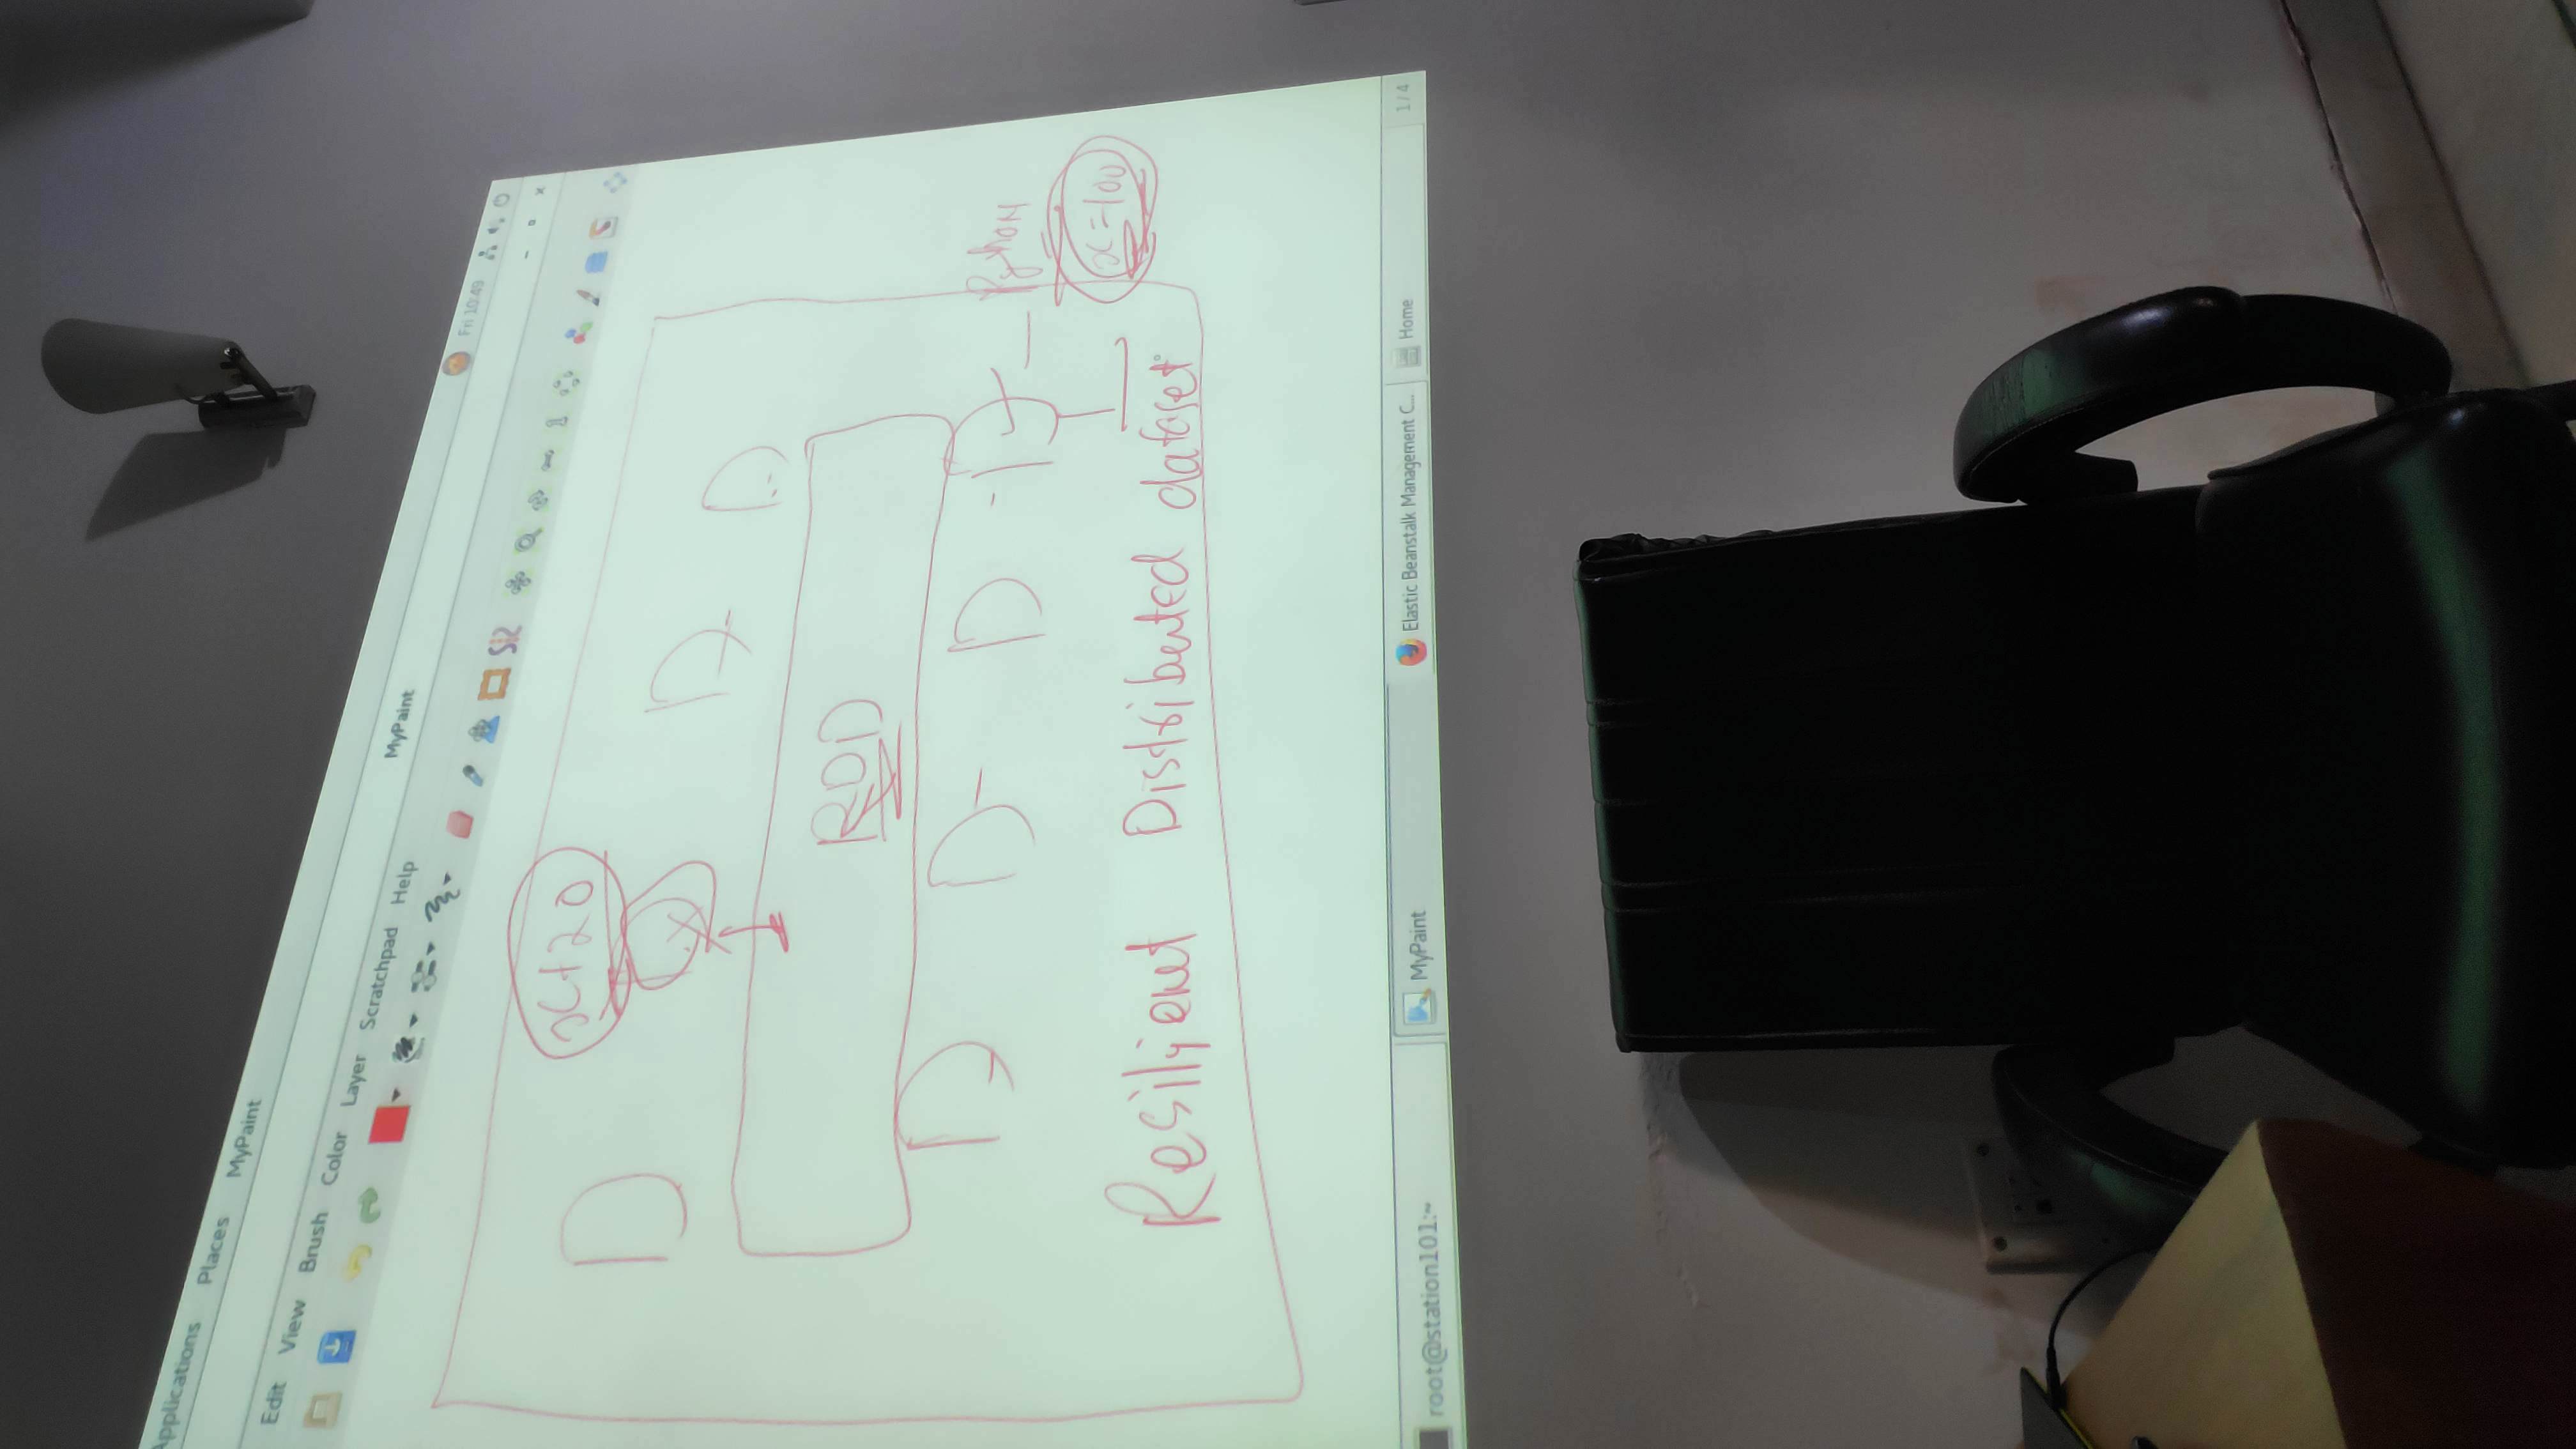 Applications Places MyPaint
MyPaint
Fri 10:49
Edit View Brush Color Layer Scratchpad Help
x+20
D
x
D
D
RDD
D D D D
Python
x=100
Resilient Distributed dataset
root@station101:~ MyPaint Elastic Beanstalk Management C... Home 1/4